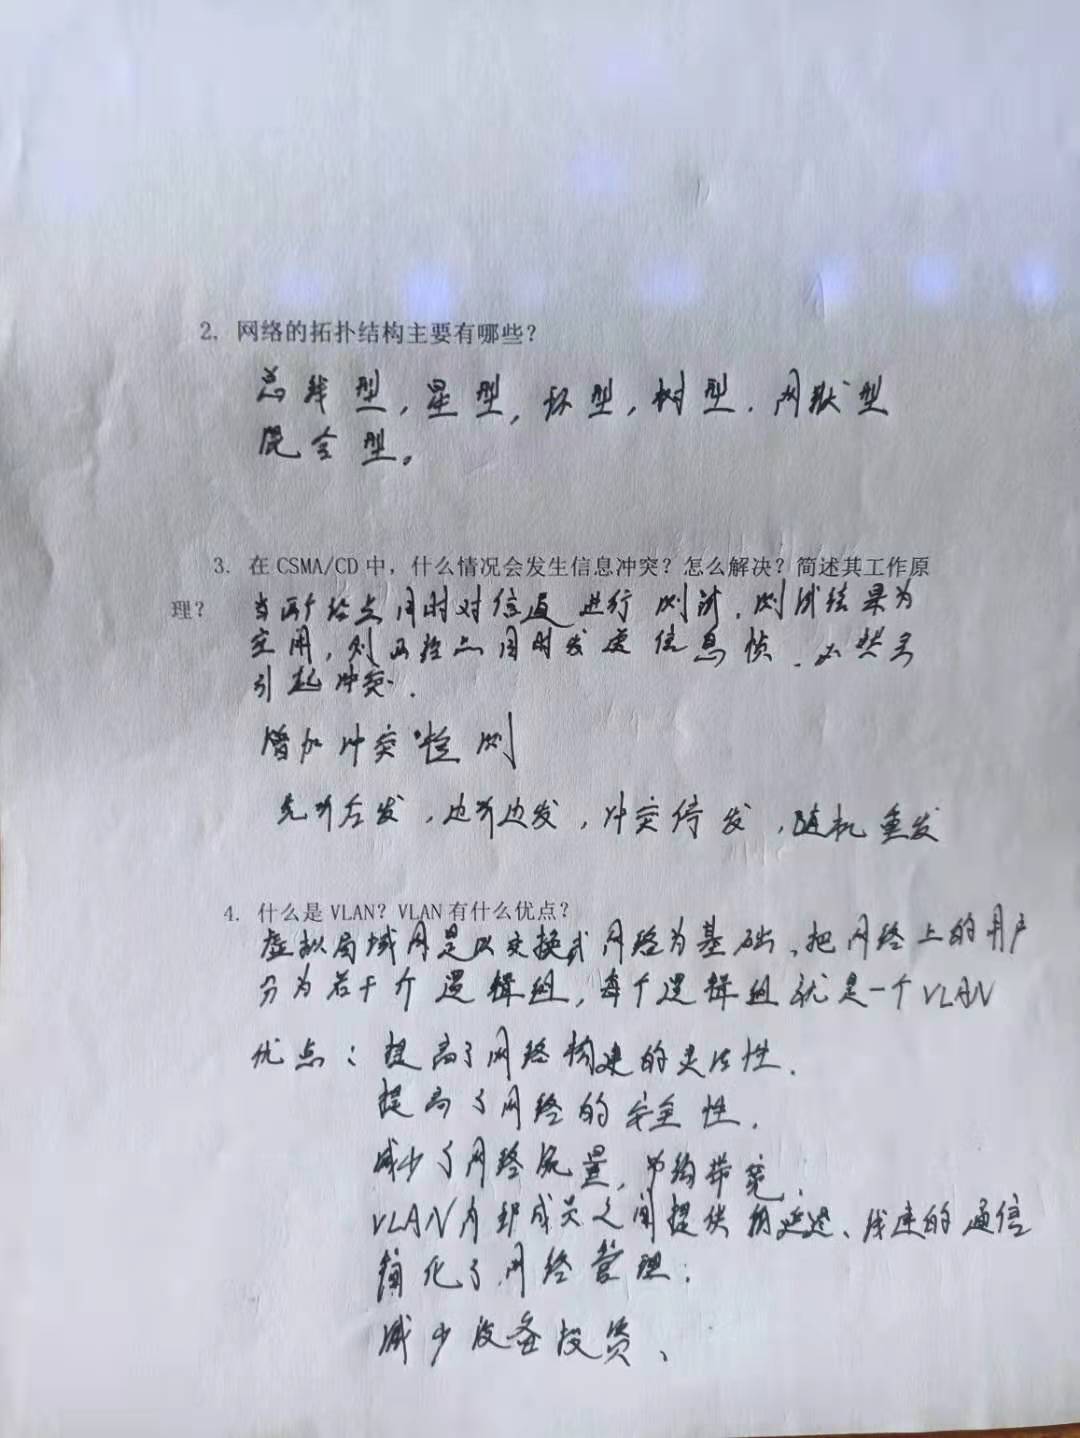 2. 网络的拓扑结构主要有哪些？
总线型，星型，环型，树型．网状型
混合型。
3. 在 CSMA/CD 中，什么情况会发生信息冲突？怎么解决？简述其工作原
理？ 当两个结点同时对信道进行测试．测试结果为
空闲，则两结点同时发送信息帧．必然会
引起冲突．
增加冲突检测
先听后发，边听边发，冲突停发，随机重发
4. 什么是 VLAN？VLAN 有什么优点？
虚拟局域网是以交换式网络为基础、把网络上的用户
分为若干个逻辑组，每个逻辑组就是一个VLAN
优点：提高了网络构建的灵活性．
提高了网络的安全性．
减少了网络流量，节约带宽．
VLAN内部成员之间提供 延迟、 速的通信
简化了网络管理；
减少设备投资、